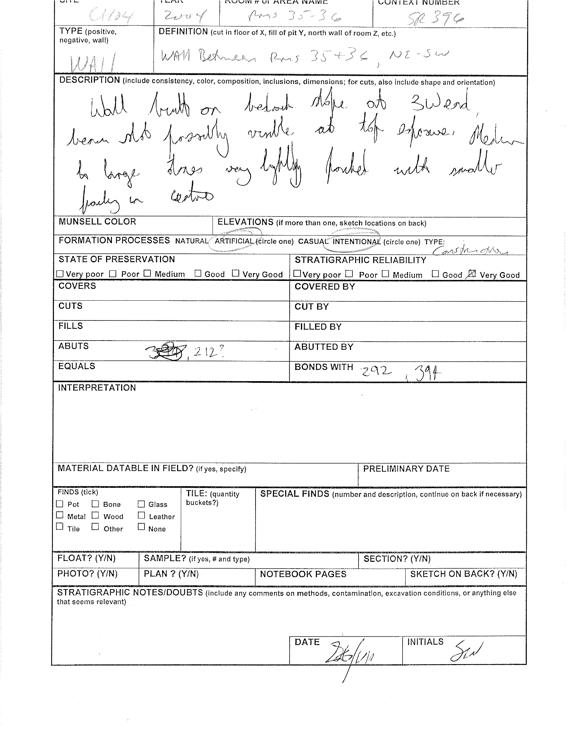 SITE YEAR ROOM # OF AREA NAME CONTEXT NUMBER
2004 Rms 35-36 SR 396
TYPE (positive, negative, wall) DEFINITION (cut in floor of X, fill of pit Y, north wall of room Z, etc.)
WALL WALL Between Rms 35+36, NE-SW
DESCRIPTION (include consistency, color, composition, inclusions, dimensions; for cuts, also include shape and orientation)
Wall built on bedrock slope at SW end,
beam slot possibly visible at top exposure. Medium
to large stones very lightly packed with smaller
in centre
MUNSELL COLOR ELEVATIONS (if more than one, sketch locations on back)
FORMATION PROCESSES NATURAL ARTIFICIAL (circle one) CASUAL INTENTIONAL (circle one) TYPE: Construction
STATE OF PRESERVATION STRATIGRAPHIC RELIABILITY
Very poor Poor Medium Good Very Good Very poor Poor Medium Good Very Good
COVERS COVERED BY
CUTS CUT BY
FILLS FILLED BY
ABUTS , 212? ABUTTED BY
EQUALS BONDS WITH 292, 394
INTERPRETATION
MATERIAL DATABLE IN FIELD? (if yes, specify) PRELIMINARY DATE
FINDS (tick) TILE: (quantity buckets?) SPECIAL FINDS (number and description, continue on back if necessary)
Pot Bone Glass
Metal Wood Leather
Tile Other None
FLOAT? (Y/N) SAMPLE? (if yes, # and type) SECTION? (Y/N)
PHOTO? (Y/N) PLAN ? (Y/N) NOTEBOOK PAGES SKETCH ON BACK? (Y/N)
STRATIGRAPHIC NOTES/DOUBTS (include any comments on methods, contamination, excavation conditions, or anything else
that seems relevant)
DATE INITIALS